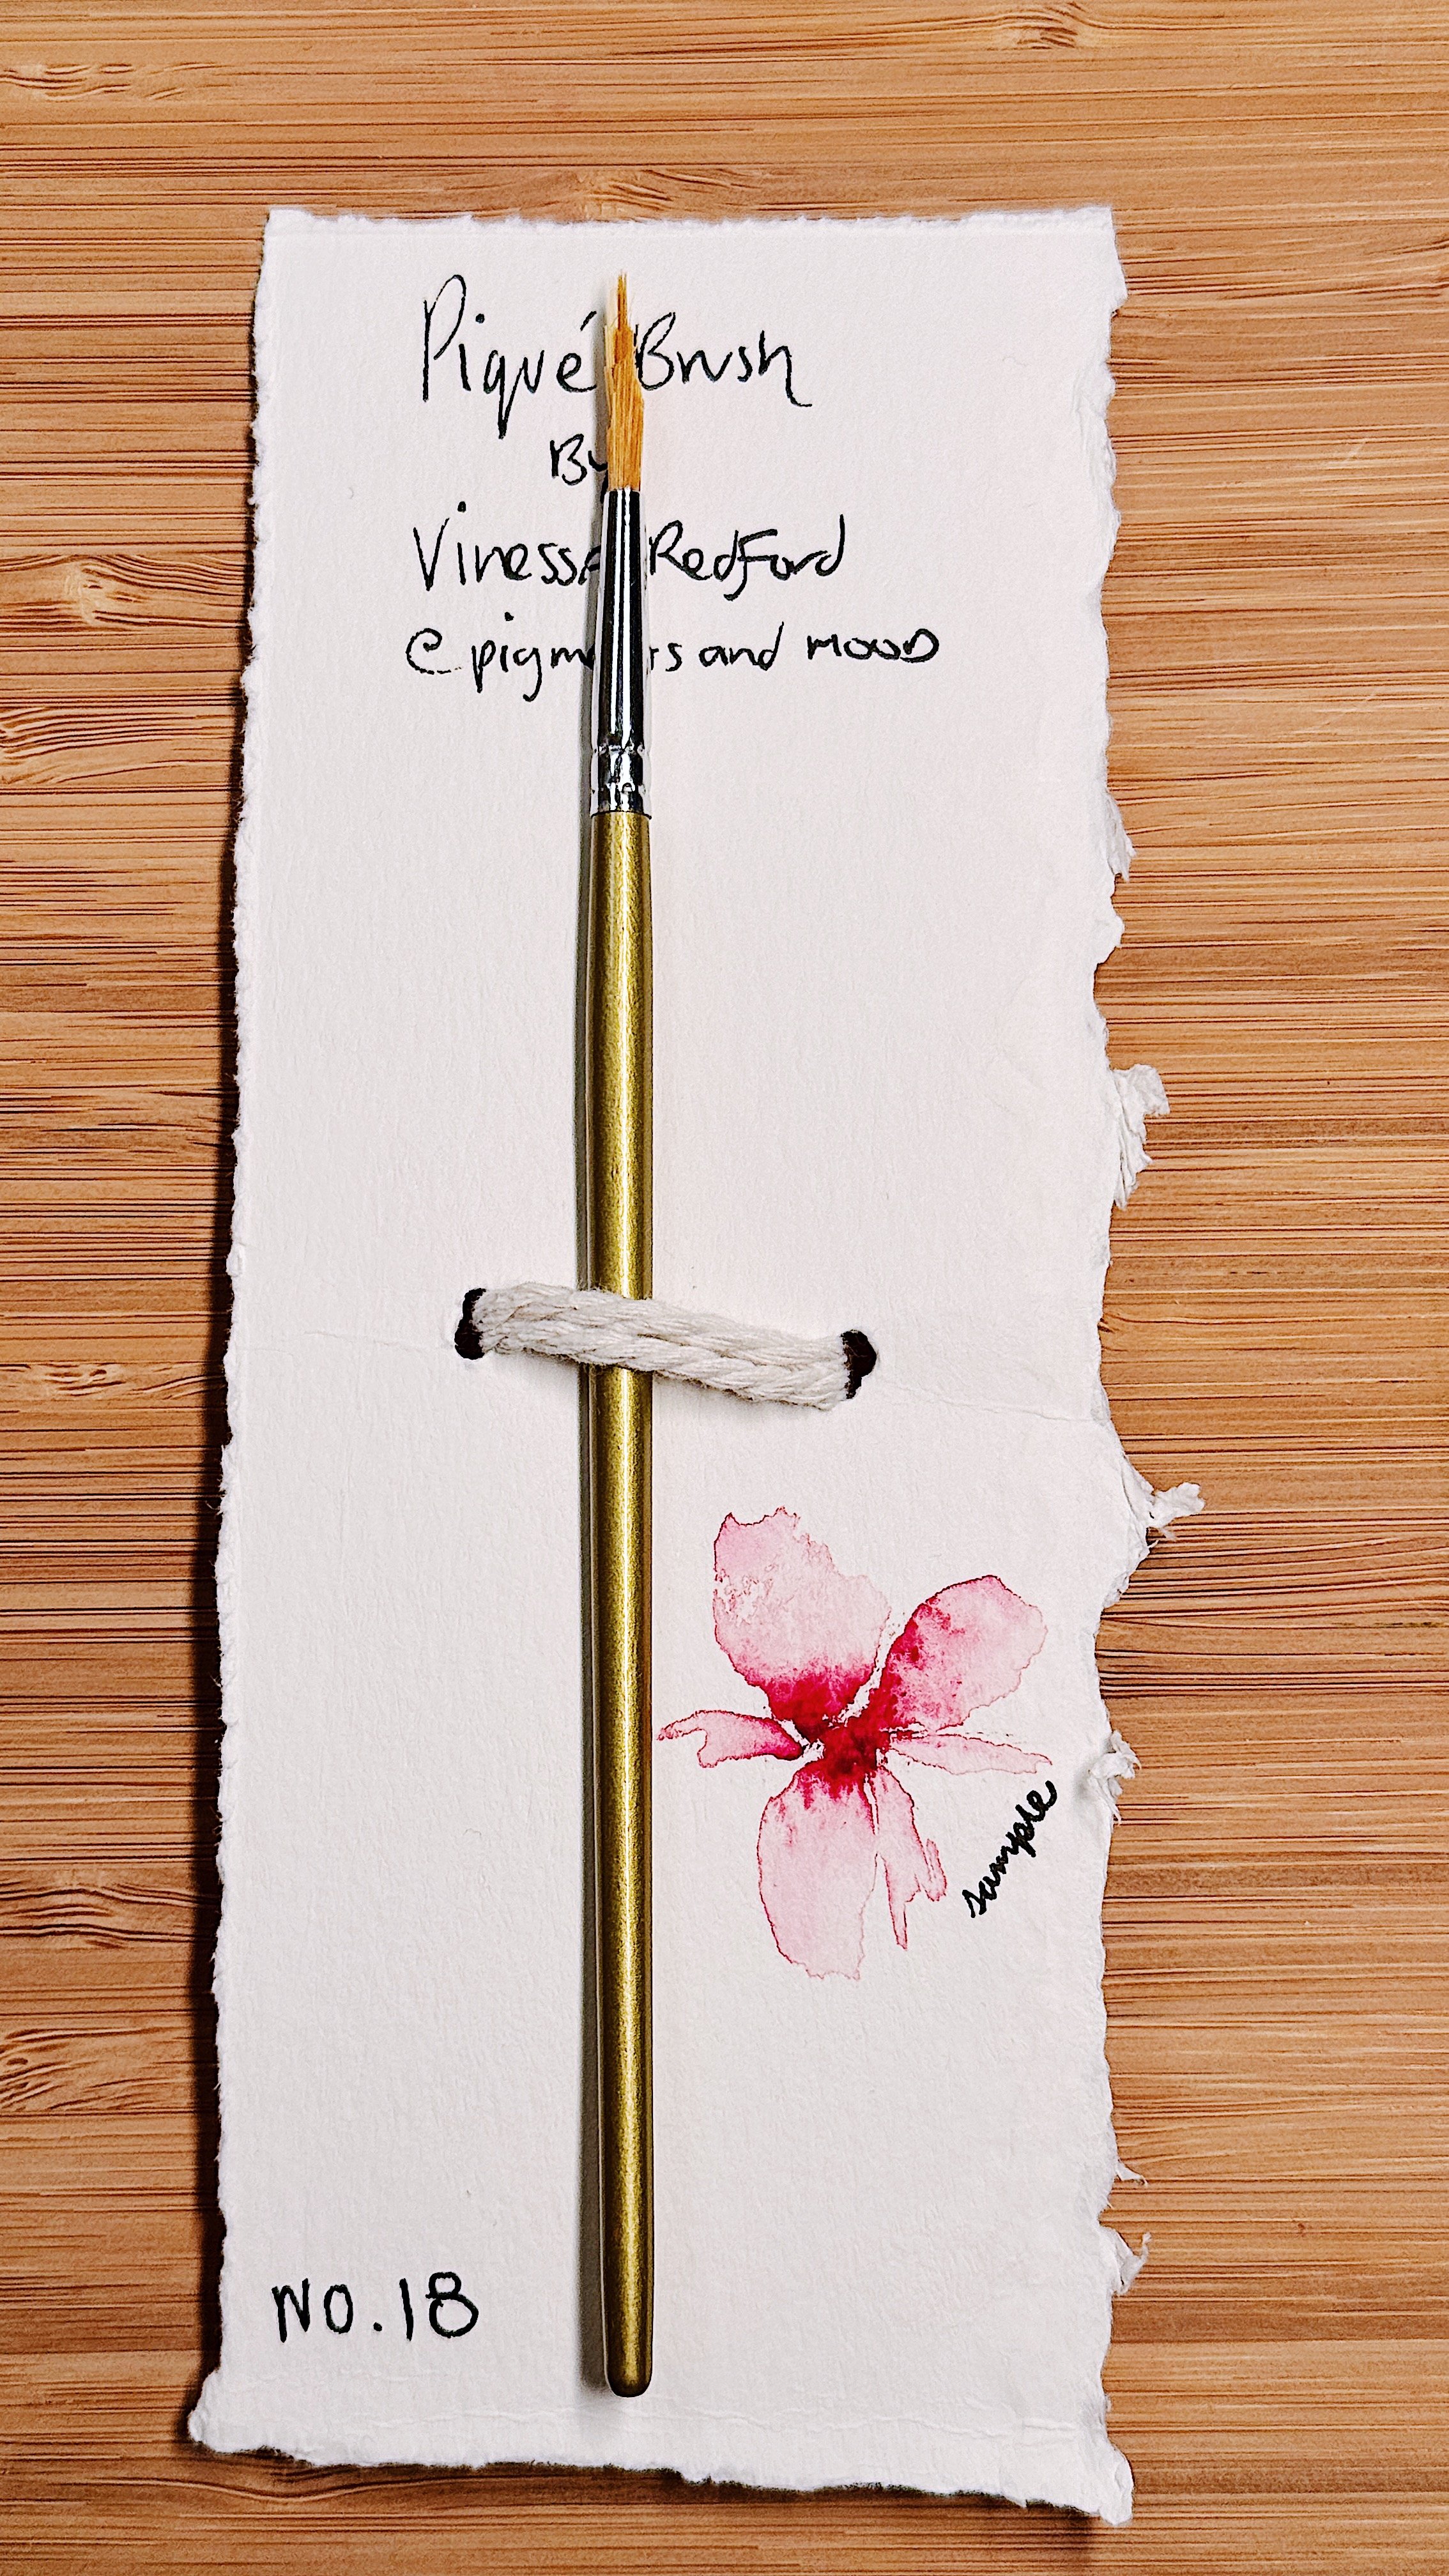 Piqué Brush
By
Vinessa Redford
and mood
sample
NO.18